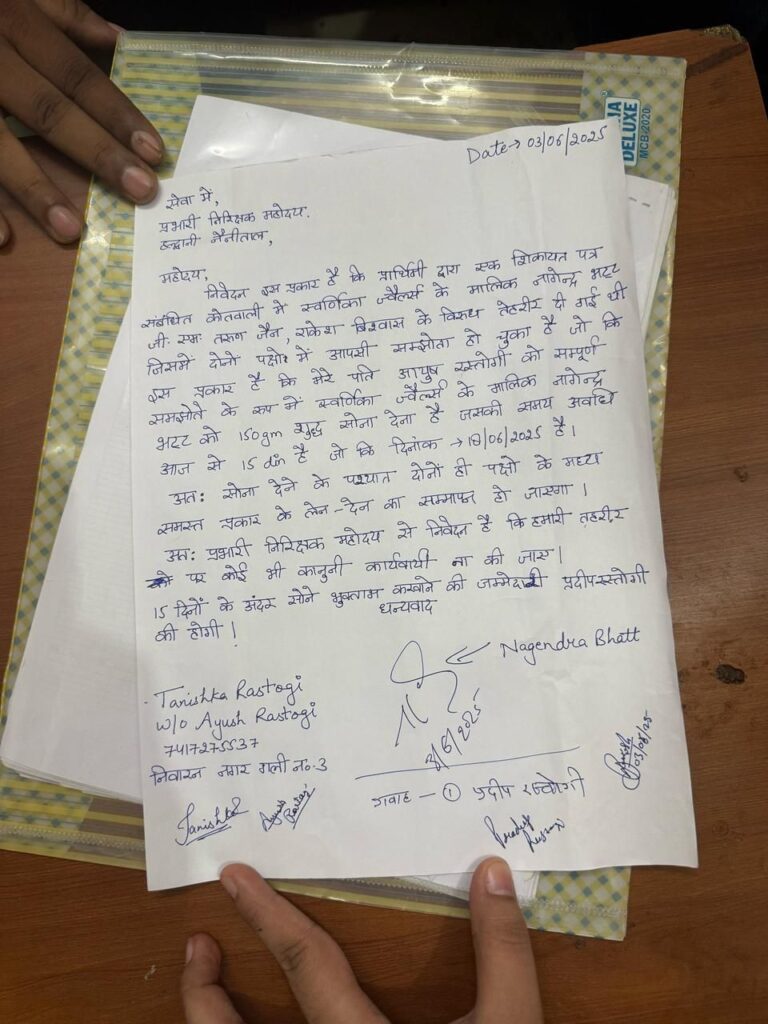 DELUXE
MCB-2020
Date→ 03/06/2025
सेवा में,
प्रभारी निरिक्षक महोदय.
हल्द्वानी नैनीताल,
महोदय,
निवेदन इस प्रकार है कि प्रार्थिनी द्वारा एक शिकायत पत्र
संबंधित कोतवाली में स्वर्णिका ज्वैलर्स के मालिक नागेन्द्र भट्ट
जी. एमः तरूण जैन, राकेश बिश्वास के विरुध तेहरीर दी गई थी
जिसमें दोनों पक्षों में आपसी समझोता हो चुका है जो कि
इस प्रकार है कि मेरे पति आयुष रस्तोगी को सम्पूर्ण
समझोते के रूप में स्वर्णिका ज्वैलर्स के मालिक नागेन्द्र
भट्ट को 150gm शुद्ध सोना देना है जिसकी समय अवधि
आज से 15 दिन है जो कि दिनांक → 18/06/2025 है।
अतः सोना देने के पश्यात दोनों ही पक्षो के मध्य
समस्त प्रकार के लेन-देन का सम्मापन्न हो जाएगा।
अतः प्रभारी निरिक्षक महोदय से निवेदन है कि हमारी तहरीर
पर कोई भी कानुनी कार्यवायी ना की जाए।
15 दिनों के अंदर सोने भुक्ताम करवाने की जम्मेदारी प्रदीप रस्तोगी
की होगी।
धन्यवाद
Nagendra Bhatt
3/6/2025
Tanishka Rastogi
W/o Ayush Rastogi
7417275537
निवारन नगर गली न०-3
Tanishka
गवाह — ① प्रदीप रस्तोगी
03/06/25